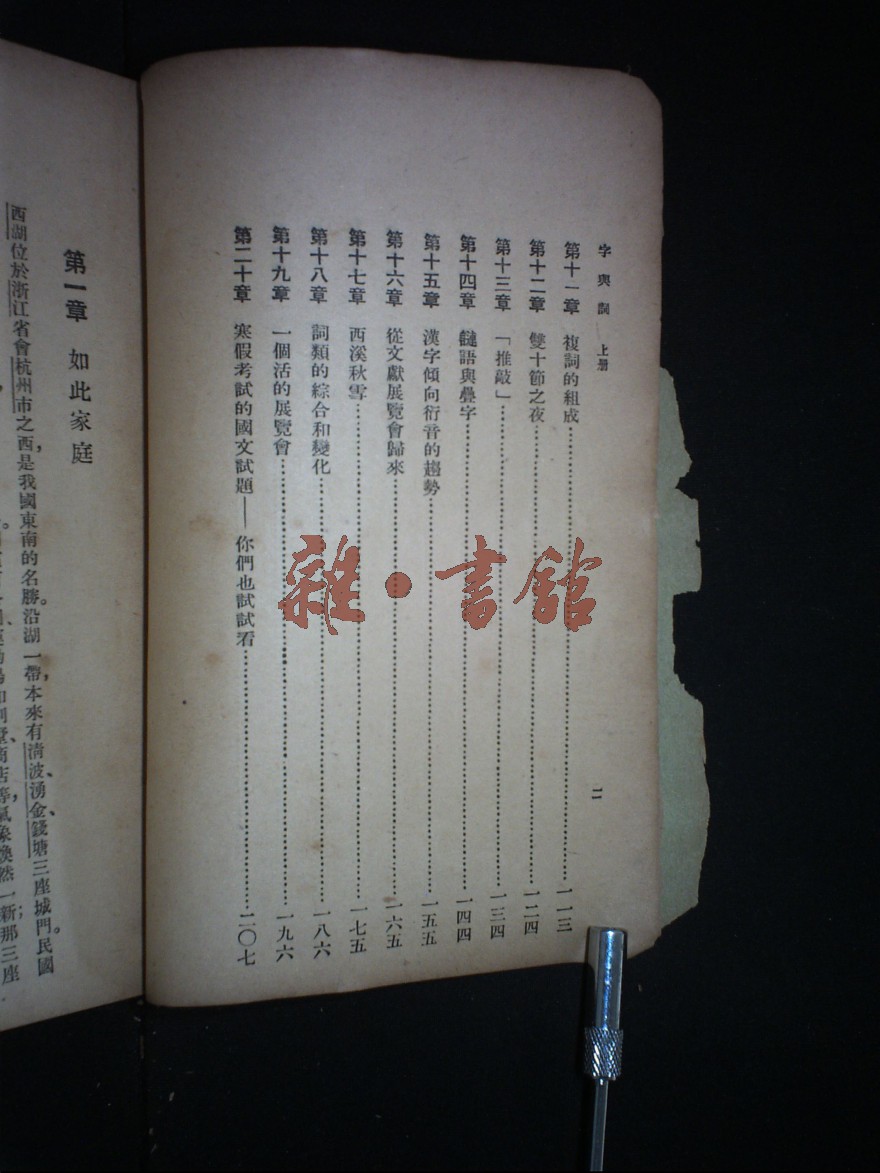 字與詞 上册
第十一章 複詞的組成……一一三
第十二章 雙十節之夜……一二四
第十三章 「推敲」……一三四
第十四章 謰語與疊字……一四四
第十五章 漢字傾向衍音的趨勢……一五五
第十六章 從文獻展覽會歸來……一六五
第十七章 西溪秋雪……一七五
第十八章 詞類的綜合和變化……一八六
第十九章 一個活的展覽會……一九六
第二十章 寒假考試的國文試題——你們也試試看……二〇七
二
雜·書館
第一章 如此家庭
西湖位於浙江省會杭州市之西,是我國東南的名勝。沿湖一帶,本來有清波、湧金、錢塘三座城門。民國
商店等,氣象煥然一新;那三座